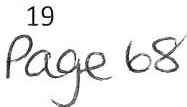 19
Page 68